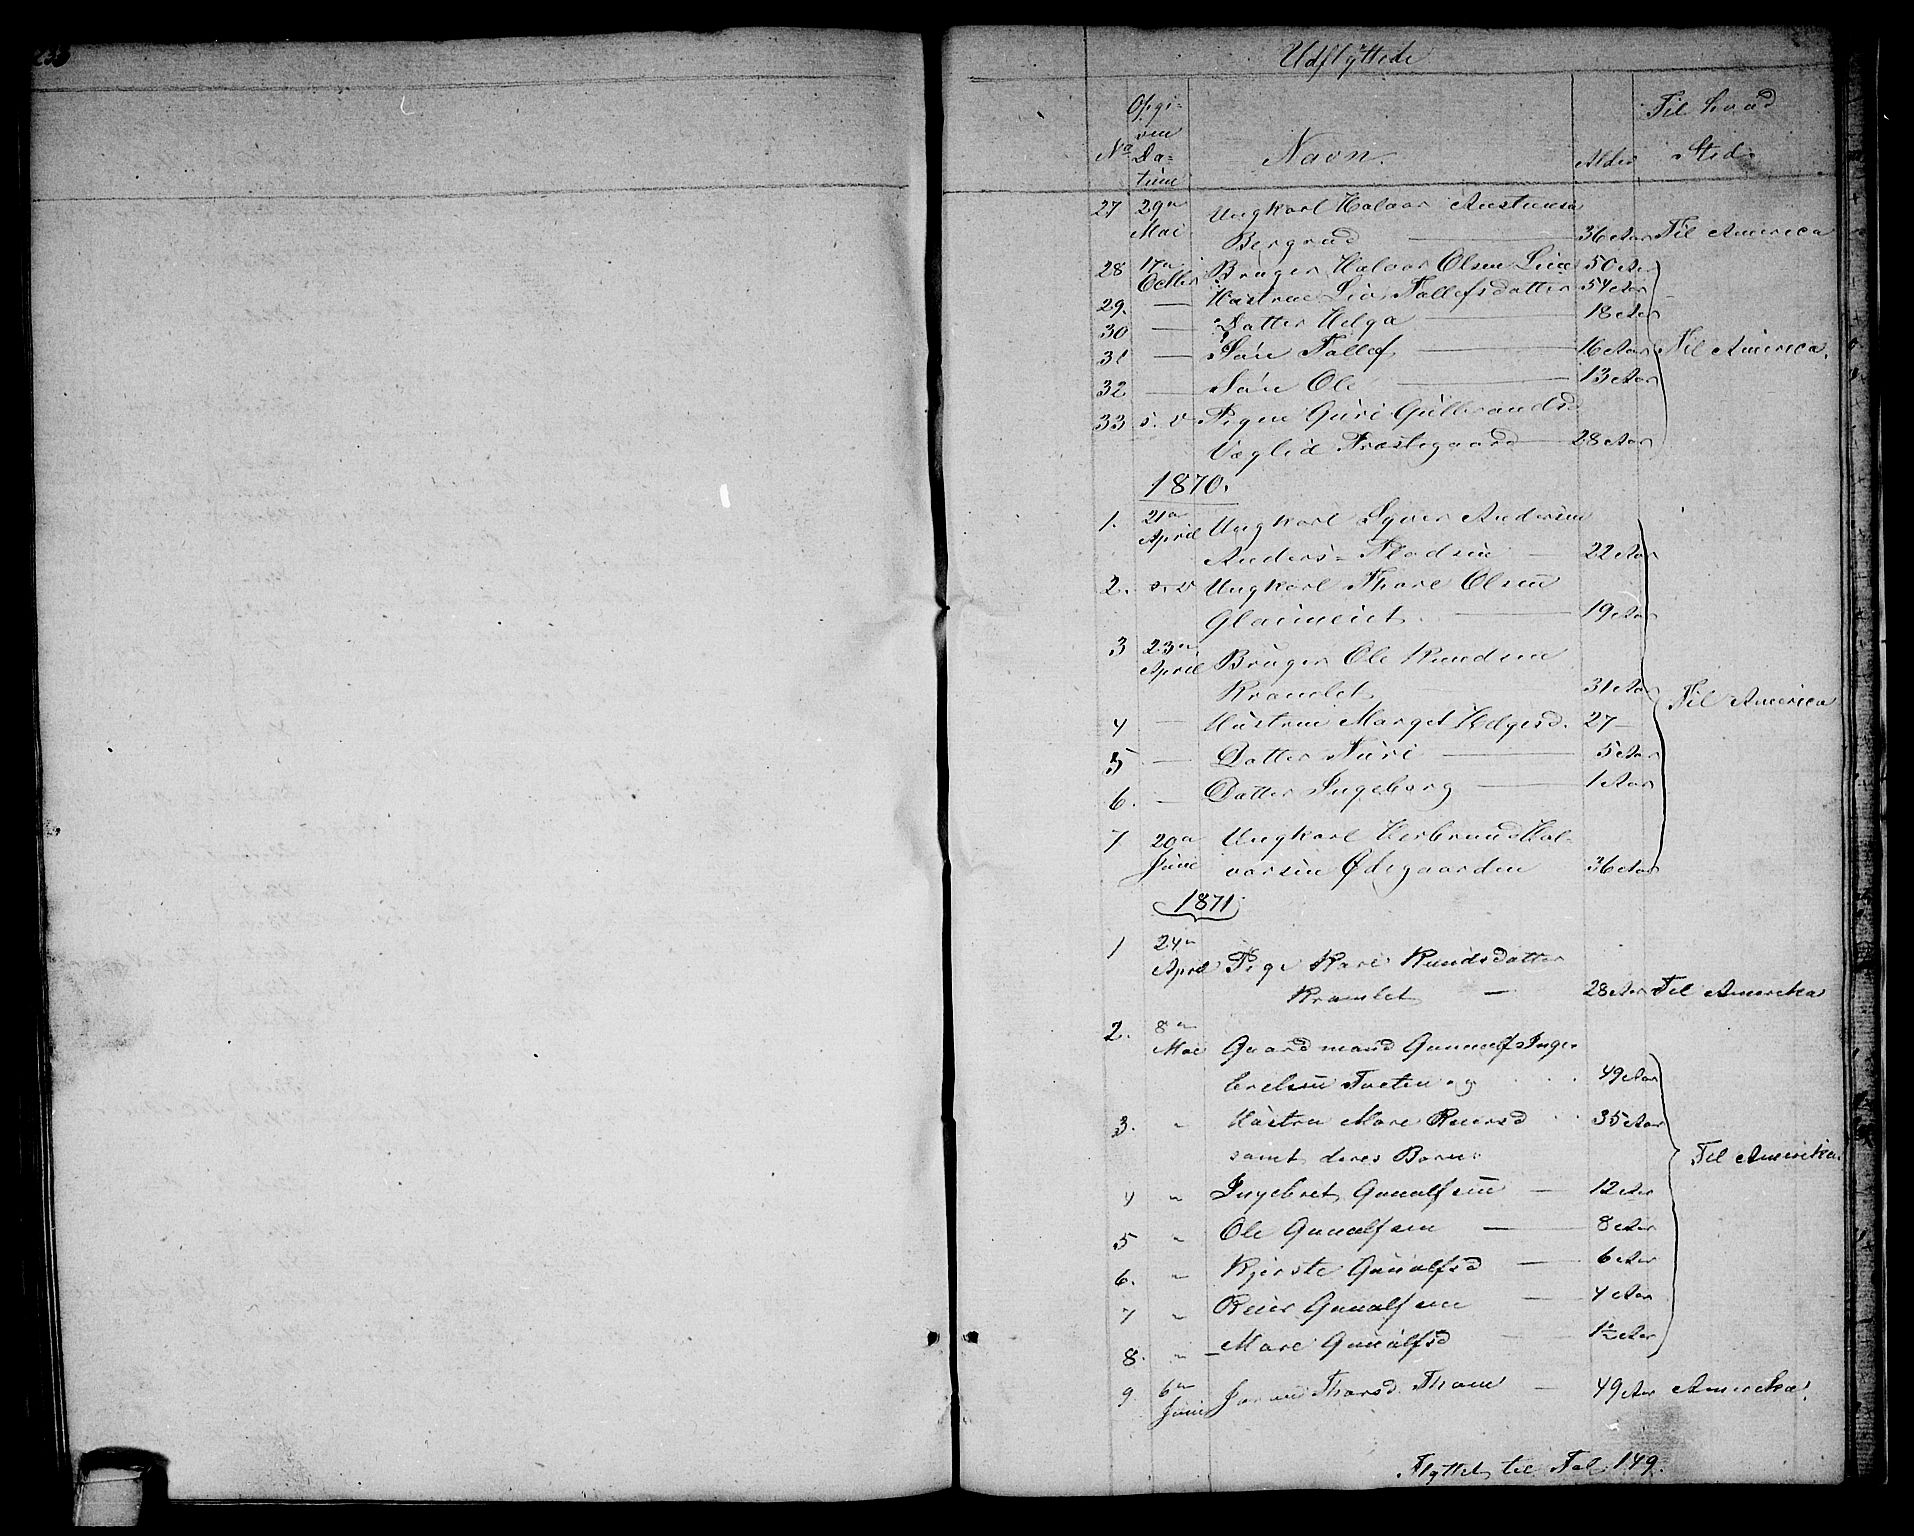 Udflyttede
No Opgiven Datum Navn. Alder Til hvad Sted.
27 29n Mai Ungkarl Halvor Austensen
Bergrud 36 Aar Til America
28 17n Octbr Bruger Halvor Olsen Lien 50 Aar
29. — Hustrue Liv Tollefsdatter 54 Aar
30 — Datter Helga — 18 Aar
31 — Søn Tollef — 16 Aar Til America.
32 — Søn Ole — 13 Aar
33 s. D Pigen Guri Gulbrandsd
Væglid Præstegaard — 28 Aar
1870.
1. 21n April Ungkarl Syver Andersen
Anders- Flodsin — 22 Aar
2. s. D Ungkarl Thore Olsen
Glaimeiet — 19 Aar
3 23n April Bruger Ole Knudsen
Kravlet 31 Aar Til America
4 — Hustrue Marget Helgesd. 27 —
5 — Datter Turi — 5 Aar
6. — Datter Ingeborg — 1 Aar
7 20n Juni Ungkarl Herbrand Hal-
vorsen Ødegaarden 36 Aar
1871
1 24n April Pige Kari Knudsdatter
Kravlet — 28 Aar Til Amerika
2. 8n Mai Gaardmand Gunnulf Inge
bretsen Toeten og 49 Aar
3. " Hustru Mari Reiersd 35 Aar
samt deres Born: Til Amerika.
4 " Ingebret Gunulfsen — 12 Aar
5 " Ole Gunulfsen — 8 Aar
6. " Kjersti Gunulfsd — 6 Aar
7 " Reier Gunulfsen — 4 Aar
8. " Mari Gunulfsd — 1½ Aar
9. 6n Juni Joran Thorsd. Thoen — 49 Aar Amerika.
Flyttet til Fol. 149.